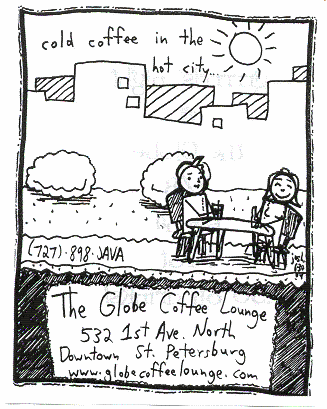 cold coffee in the
hot city...
(727)·898·JAVA
The Globe Coffee Lounge
532 1st Ave. North
Downtown St. Petersburg
www.globecoffeelounge.com